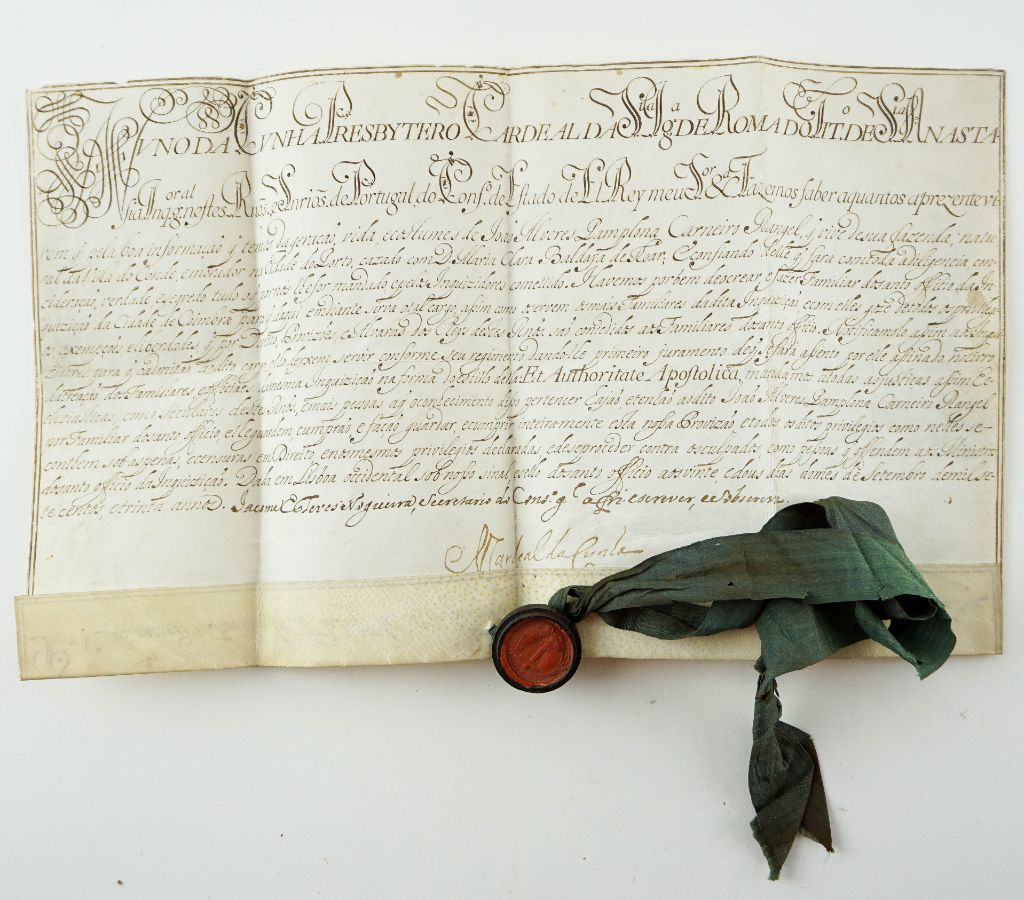 NUNO DA CUNHA PRESBYTERO CARDEAL DA Sta Igª DE ROMA DO TITº DE Sta ANASTA
sia Inqor gral nestes Rnos, e Snrios, de Portugal do Conso de Estado de El Rey meu Sor &ª Fazemos saber a quantos a prezente vi-
rem q pela boa informação q temos da geração, vida, e costumes de João Alveres Pamplona Carneiro Rangel, q vive de sua fazenda, natu
ral da Vila do Conde, e morador na Cidade do Porto, cazado com D. Maria Clara Baldaya de Tovar, E confiando delle q fará com toda diligencia con-
cideração, verdade e segredo tudo o q por nos lhe for mandado e pelos Inquizidores cometido. Havemos por bem de o crear e fazer Familiar do santo officio da In-
quizição da Cidade de Coimbra para q daqui em diante sirva o tal cargo, assim como o servem os mais Familiares da dita Inquizição e com elle goze de todos os privilegi-
os exempções e liberdades q por Direito, Provizões e Alvarás dos Reys destes Rnos são concedidos aos Familiares do santo officio. Notificamos assim aos Inqui-
zidores para q o admitão ao dito cargo e lho deixem servir conforme seu regimento dandolhe primeiro juramento de q se fará asento por elle asinado no livro
da creação dos Familiares e officiaes da mesma Inquizição na forma do estillo della. Et Authoritate Apostolica, mandamos a todas as justiças assim Ec-
cleziasticas, como seculares destes Rnos, e mais pessoas a q o conhecimento disto pertencer hajão e tenhão ao dito João Alveres Pamplona Carneiro Rangel
por Familiar do santo officio, e lhe guardem, cumprão e fação guardar, e cumprir inteiramente esta nossa Provizão, e todos os ditos privilegios como nelles se-
contém sob as penas, e censuras em Direito e nos mesmos privilegios declaradas, e de se proceder contra os culpados, como pessoas q offendem aos Ministros
do santo officio da Inquizição. Dada em Lisboa occidental sob nosso sinal e sello do santo officio aos vinte, e dous dias do mes de Setembro de mil se-
te centos, e trinta annos. Jacome Esteves Nogueira, Secretario do Conso gl a fiz escrever, e sobscrevi.
N. Cardeal da Cunha